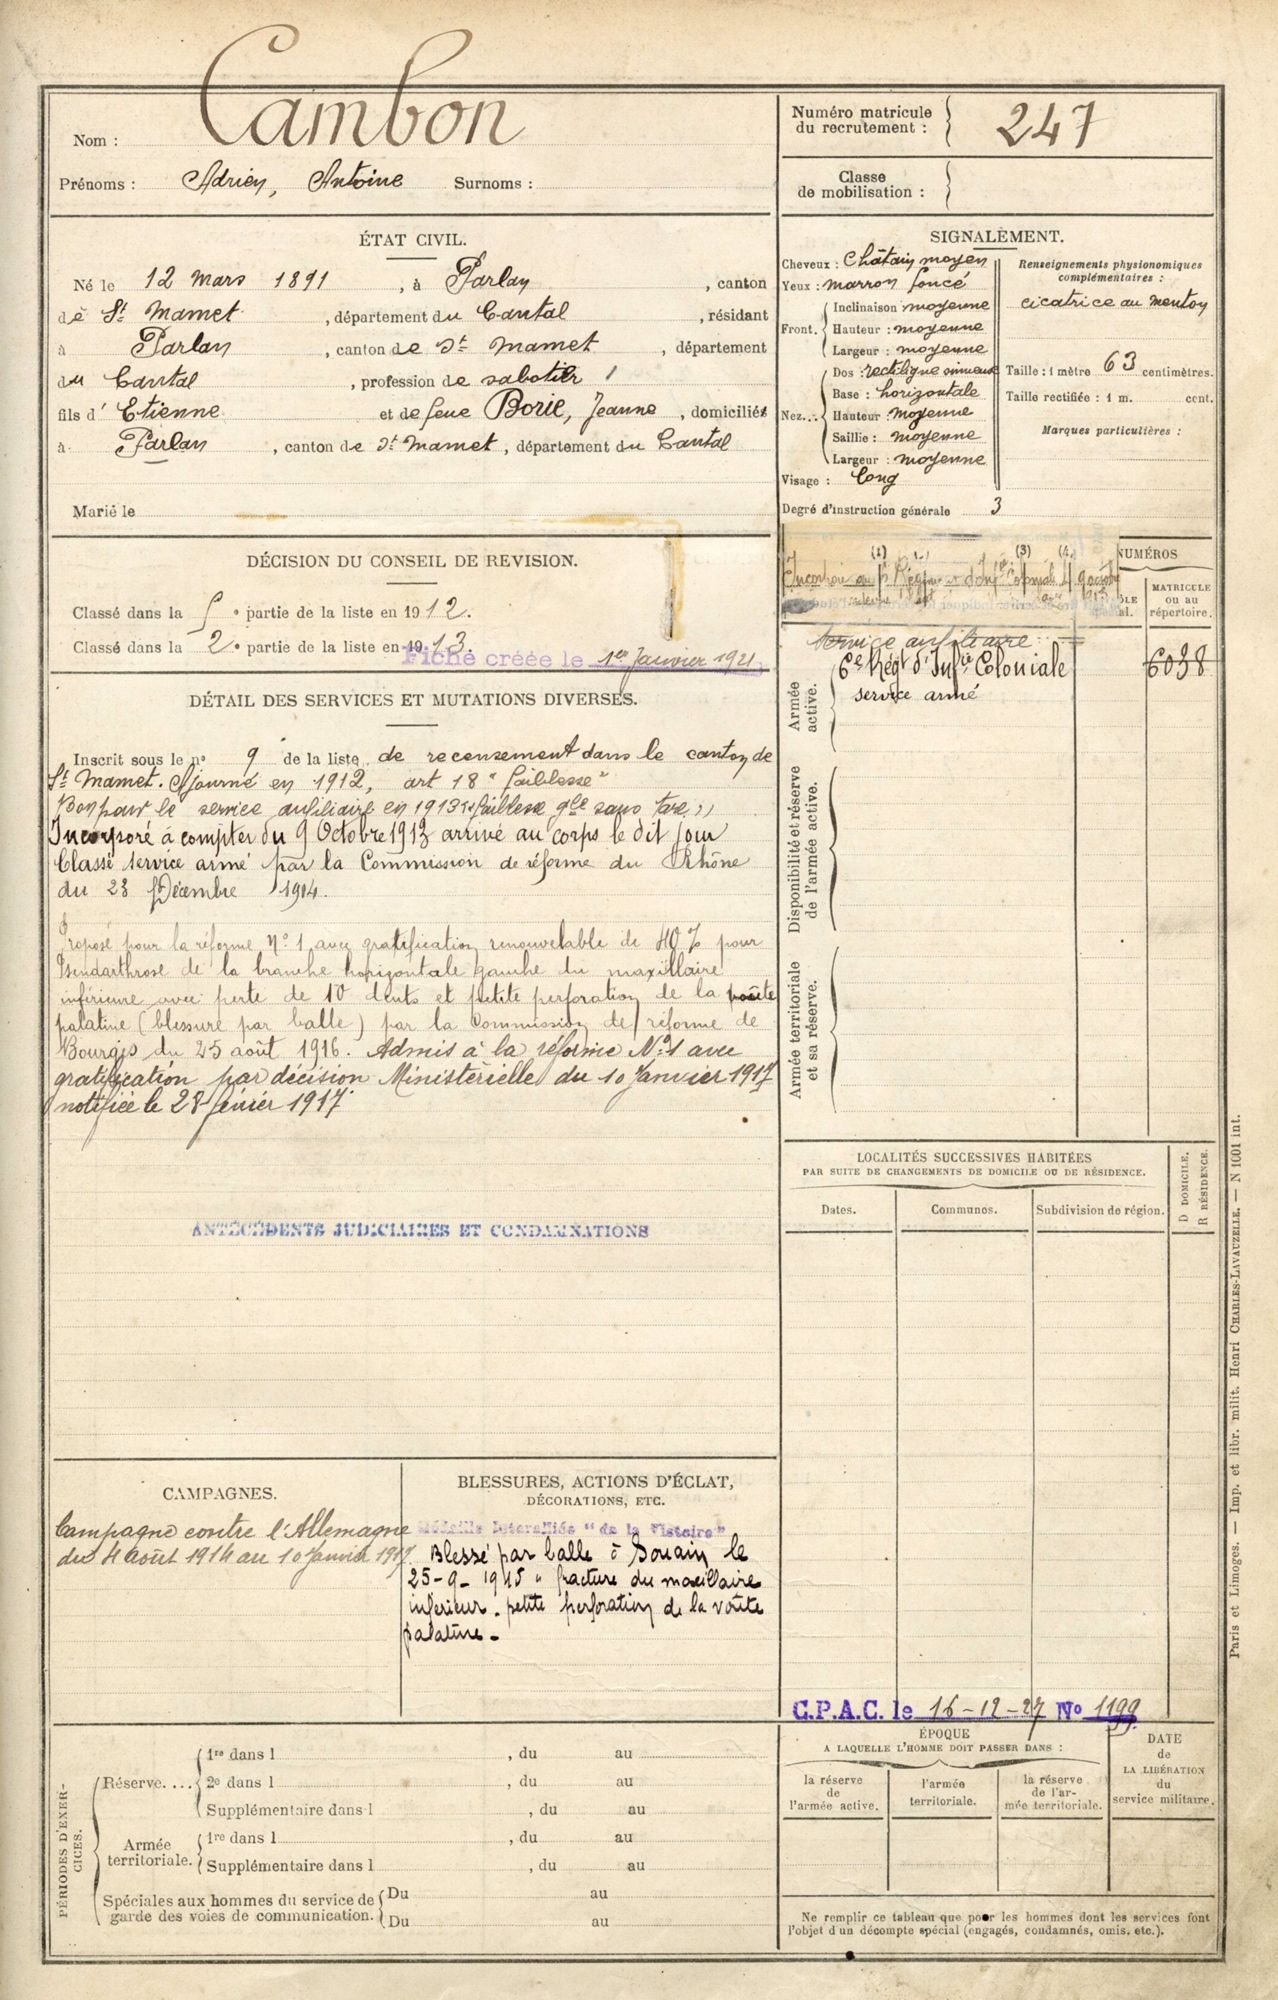 Nom : Cambon
Prénoms : Adrien, Antoine Surnoms :
Numéro matricule du recrutement : 247
Classe de mobilisation :
ÉTAT CIVIL.
Né le 12 mars 1891, à Parlan, canton
de St Mamet, département du Cantal, résidant
à Parlan, canton de St Mamet, département
du Cantal, profession de sabotier
fils d' Etienne et de feue Borie, Jeanne, domiciliés
à Parlan, canton de St Mamet, département du Cantal
Marié le
SIGNALEMENT.
Cheveux : Châtain moyen
Yeux : marron foncé
Front. Inclinaison moyenne
Hauteur : moyenne
Largeur : moyenne
Nez... Dos : rectiligne sinueux
Base : horizontale
Hauteur moyenne
Saillie : moyenne
Largeur : moyenne
Visage : Long
Degré d'instruction générale 3
Renseignements physionomiques
complémentaires :
cicatrice au menton
Taille : 1 mètre 63 centimètres.
Taille rectifiée : 1 m. cent.
Marques particulières :
DÉCISION DU CONSEIL DE REVISION.
Classé dans la 5e partie de la liste en 1912.
Classé dans la 2e partie de la liste en 1913.
Fiche créée le 1er Janvier 1921
NUMÉROS
MATRICULE
ou au
répertoire.
Armée
active.
service auxiliaire
6e Régt d'Infie Coloniale 6038
service armé
Disponibilité et réserve
de l'armée active.
Armée territoriale
et sa réserve.
DÉTAIL DES SERVICES ET MUTATIONS DIVERSES.
Inscrit sous le no 9 de la liste de recensement dans le canton de
St Mamet. Ajourné en 1912, art 18 "faiblesse"
Bon pour le service auxiliaire en 1913 "faiblesse gle sans tare"
Incorporé à compter du 9 Octobre 1913 arrivé au corps le dit jour
Classé service armé par la Commission de réforme du Rhône
du 23 Décembre 1914.
Proposé pour la réforme No 1 avec gratification renouvelable de 40 % pour
Pseudarthrose de la branche horizontale gauche du maxillaire
inférieure avec perte de 10 dents et petite perforation de la voûte
palatine (blessure par balle) par la Commission de réforme de
Bourges du 25 août 1916. Admis à la réforme No 1 avec
gratification par décision Ministérielle du 10 Janvier 1917
notifiée le 28 février 1917
ANTÉCÉDENTS JUDICIAIRES ET CONDAMNATIONS
LOCALITÉS SUCCESSIVES HABITÉES
PAR SUITE DE CHANGEMENTS DE DOMICILE OU DE RÉSIDENCE.
Dates. Communes. Subdivision de région. D DOMICILE. R RÉSIDENCE.
CAMPAGNES.
Campagne contre l'Allemagne
du 4 août 1914 au 10 Janvier 1917.
BLESSURES, ACTIONS D'ÉCLAT,
DÉCORATIONS, ETC.
Médaille Interalliée "de la Victoire"
Blessé par balle à Souain le
25-9-1915 " fracture du maxillaire
inférieur. petite perforation de la voûte
palatine.
C.P.A.C. le 16-12-27 No 1199
PÉRIODES D'EXERCICES.
Réserve.... 1re dans l , du au
2e dans l , du au
Supplémentaire dans l , du au
Armée
territoriale. 1re dans l , du au
Supplémentaire dans l , du au
Spéciales aux hommes du service de
garde des voies de communication. Du au
Du au
ÉPOQUE
A LAQUELLE L'HOMME DOIT PASSER DANS :
la réserve
de
l'armée active.
l'armée
territoriale.
la réserve
de l'ar-
mée territoriale.
DATE
de
LA LIBÉRATION
du
service militaire.
Ne remplir ce tableau que pour les hommes dont les services font
l'objet d'un décompte spécial (engagés, condamnés, omis, etc.).
Paris et Limoges. — Imp. et libr. milit. Henri CHARLES-LAVAUZELLE. — N 1001 int.